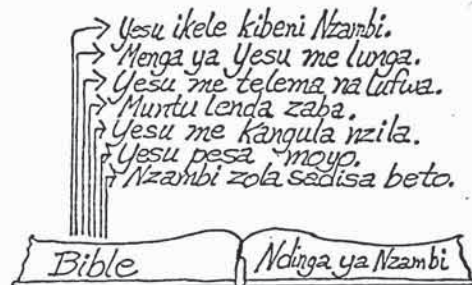 Yesu ikele kibeni Nzambi.
Menga ya Yesu me lunga.
Yesu me telema na lufwa.
Muntu lenda zaba.
Yesu me kangula nzila.
Yesu pesa moyo.
Nzambi zola sadisa beto.
Bible
Ndinga ya Nzambi